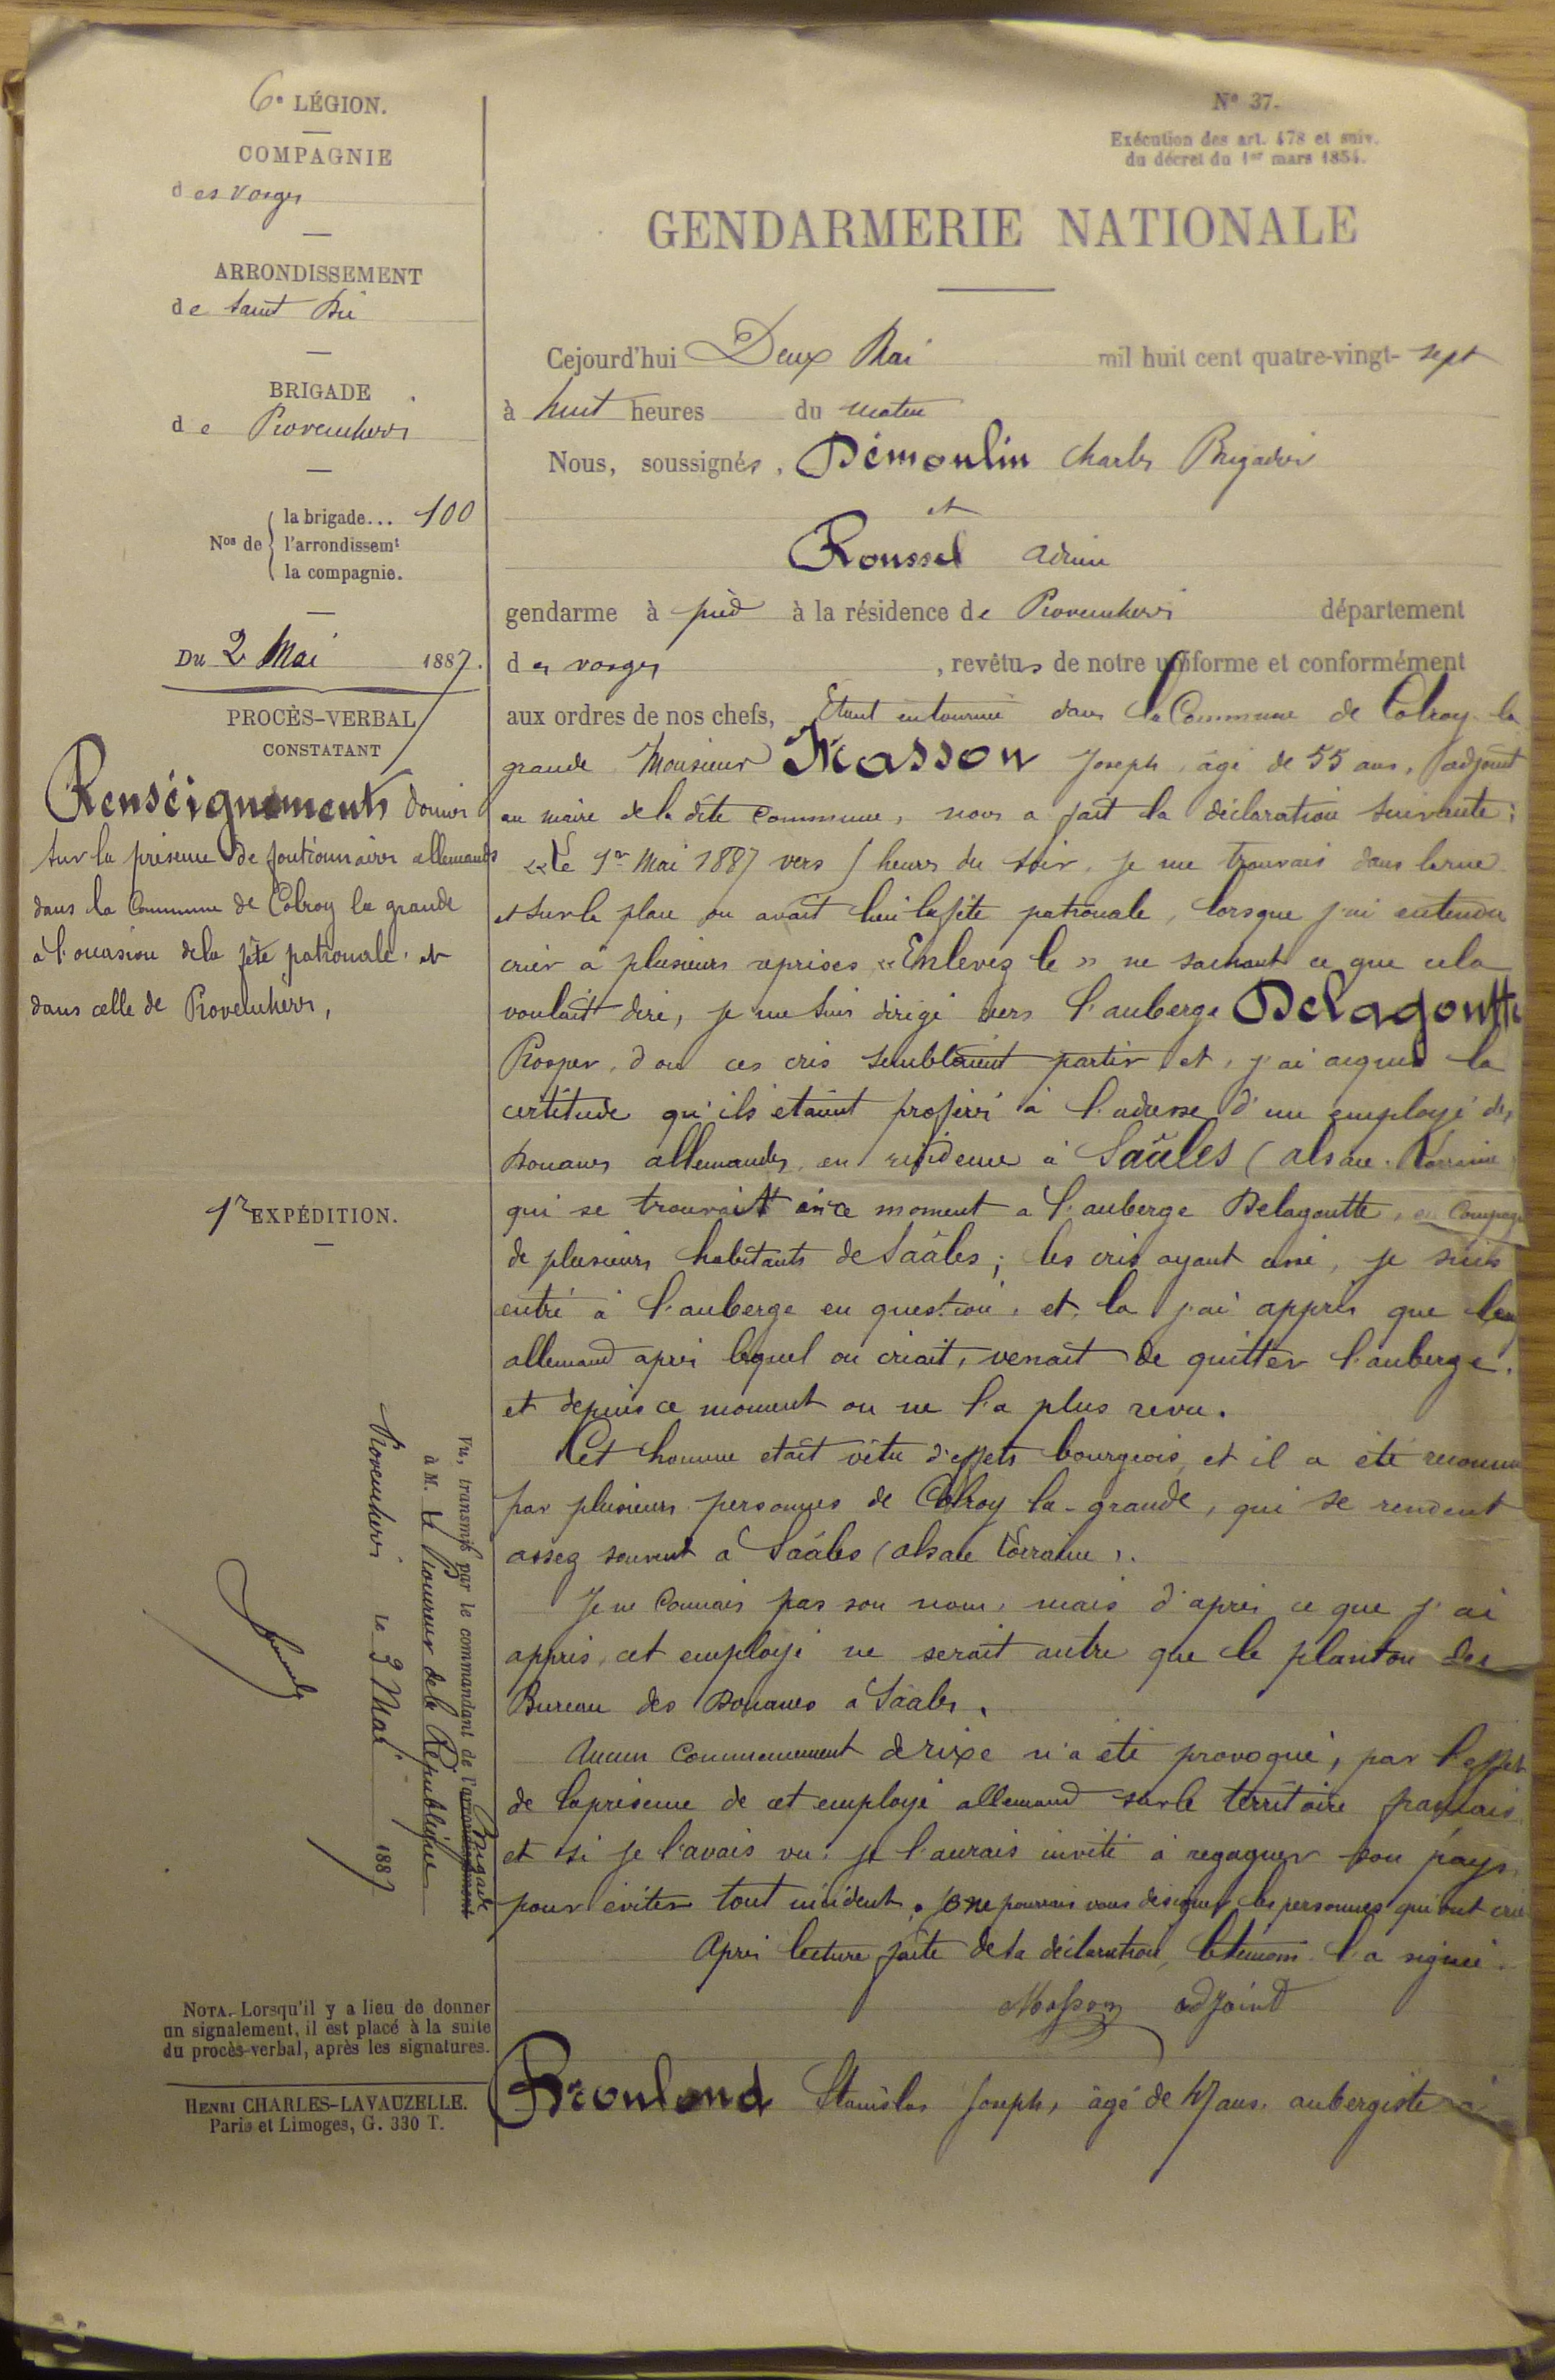 6e LÉGION.
COMPAGNIE
des Vosges
ARRONDISSEMENT
de Saint Dié
BRIGADE
de Provenchères
Nos de
la brigade... 100
l'arrondissemt
la compagnie.
Du 2 Mai 1887.
PROCÈS-VERBAL
CONSTATANT
Renséignements donnés
sur la présence de fonctionnaires allemands
dans la Commune de Colroy la grande
à l'occasion de la fête patronale, et
dans celle de Provenchères,
1re EXPÉDITION.
Vu, transmis par le commandant de l'arrondissement Brigade
à M. le Procureur de la République
Provenchères le 3 Mai 1887
NOTA. Lorsqu'il y a lieu de donner
un signalement, il est placé à la suite
du procès-verbal, après les signatures.
HENRI CHARLES-LAVAUZELLE.
Paris et Limoges, G. 330 T.
No 37.
Exécution des art. 478 et suiv.
du décret du 1er mars 1854.
GENDARMERIE NATIONALE
Cejourd'hui Deux Mai mil huit cent quatre-vingt-sept
à huit heures du matin
Nous, soussignés, Démoulin Charles Brigadier
et
Roussel Adrien
gendarme à pied à la résidence de Provenchères département
des vosges, revêtus de notre uniforme et conformément
aux ordres de nos chefs, Etant en tournée dans la Commune de Colroy-la
grande Monsieur Masson Joseph, âgé de 55 ans, adjoint
au maire de la dite commune, nous a fait la déclaration suivante:
« Le 1er Mai 1887 vers heures du soir, je me trouvais dans la rue
et sur la place ou avait lieu la fête patronale, lorsque j'ai entendu
crier à plusieurs reprises « Enlevez le » ne sachant ce que cela
voulait dire, je me suis dirigé vers l'auberge Delagoutte
Prosper, d'ou ces cris semblaient partir et, j'ai acquis la
certitude qu'ils étaient proférés à l'adresse d'un employé des
Douanes allemandes, en résidence à Saâles (alsace-Lorraine
qui se trouvait en ce moment a l'auberge Delagoutte, en Compagn
de plusieurs habitants de Saâles; les cris ayant cessé, je suis
entré à l'auberge en question, et, la j'ai appris que
allemand après lequel on criait, venait de quitter l'auberge.
et depuis ce moment on ne l'a plus revu.
Cet homme était vêtu d'effets bourgeois, et il a été reconnu
par plusieurs personnes de Colroy-la-grande, qui se rendent
assez souvent à Saâles (alsace Lorraine).
Je ne connais pas son nom, mais d'après ce que j'ai
appris, cet employé ne serait autre que le planton des
Bureau des Douanes à Saâles.
Aucun commencement de rixe n'a été provoqué, par l'effet
de la présence de cet employé allemand sur le territoire français
et si je l'avais vu, je l'aurais invité à regagner son pays,
pour éviter tout incident. Je ne pourrais vous désigner les personnes qui ont crié
Après lecture faite de sa déclaration, le témoin l'a signée.
Masson adjoint
Stanislas Joseph, âgé de 47 ans, aubergiste à